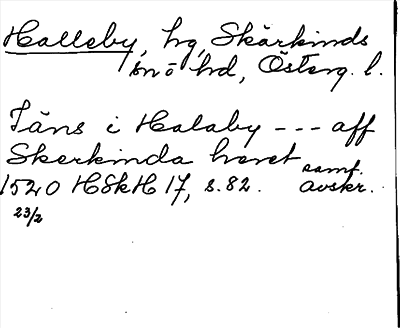 Halleby, hg, Skärkinds
sn o hd, Österg. l.
Jäns i Halaby --- aff
Skerkinda hæret
samt.
1520 HSkH 17, s. 82. avskr.
23/2